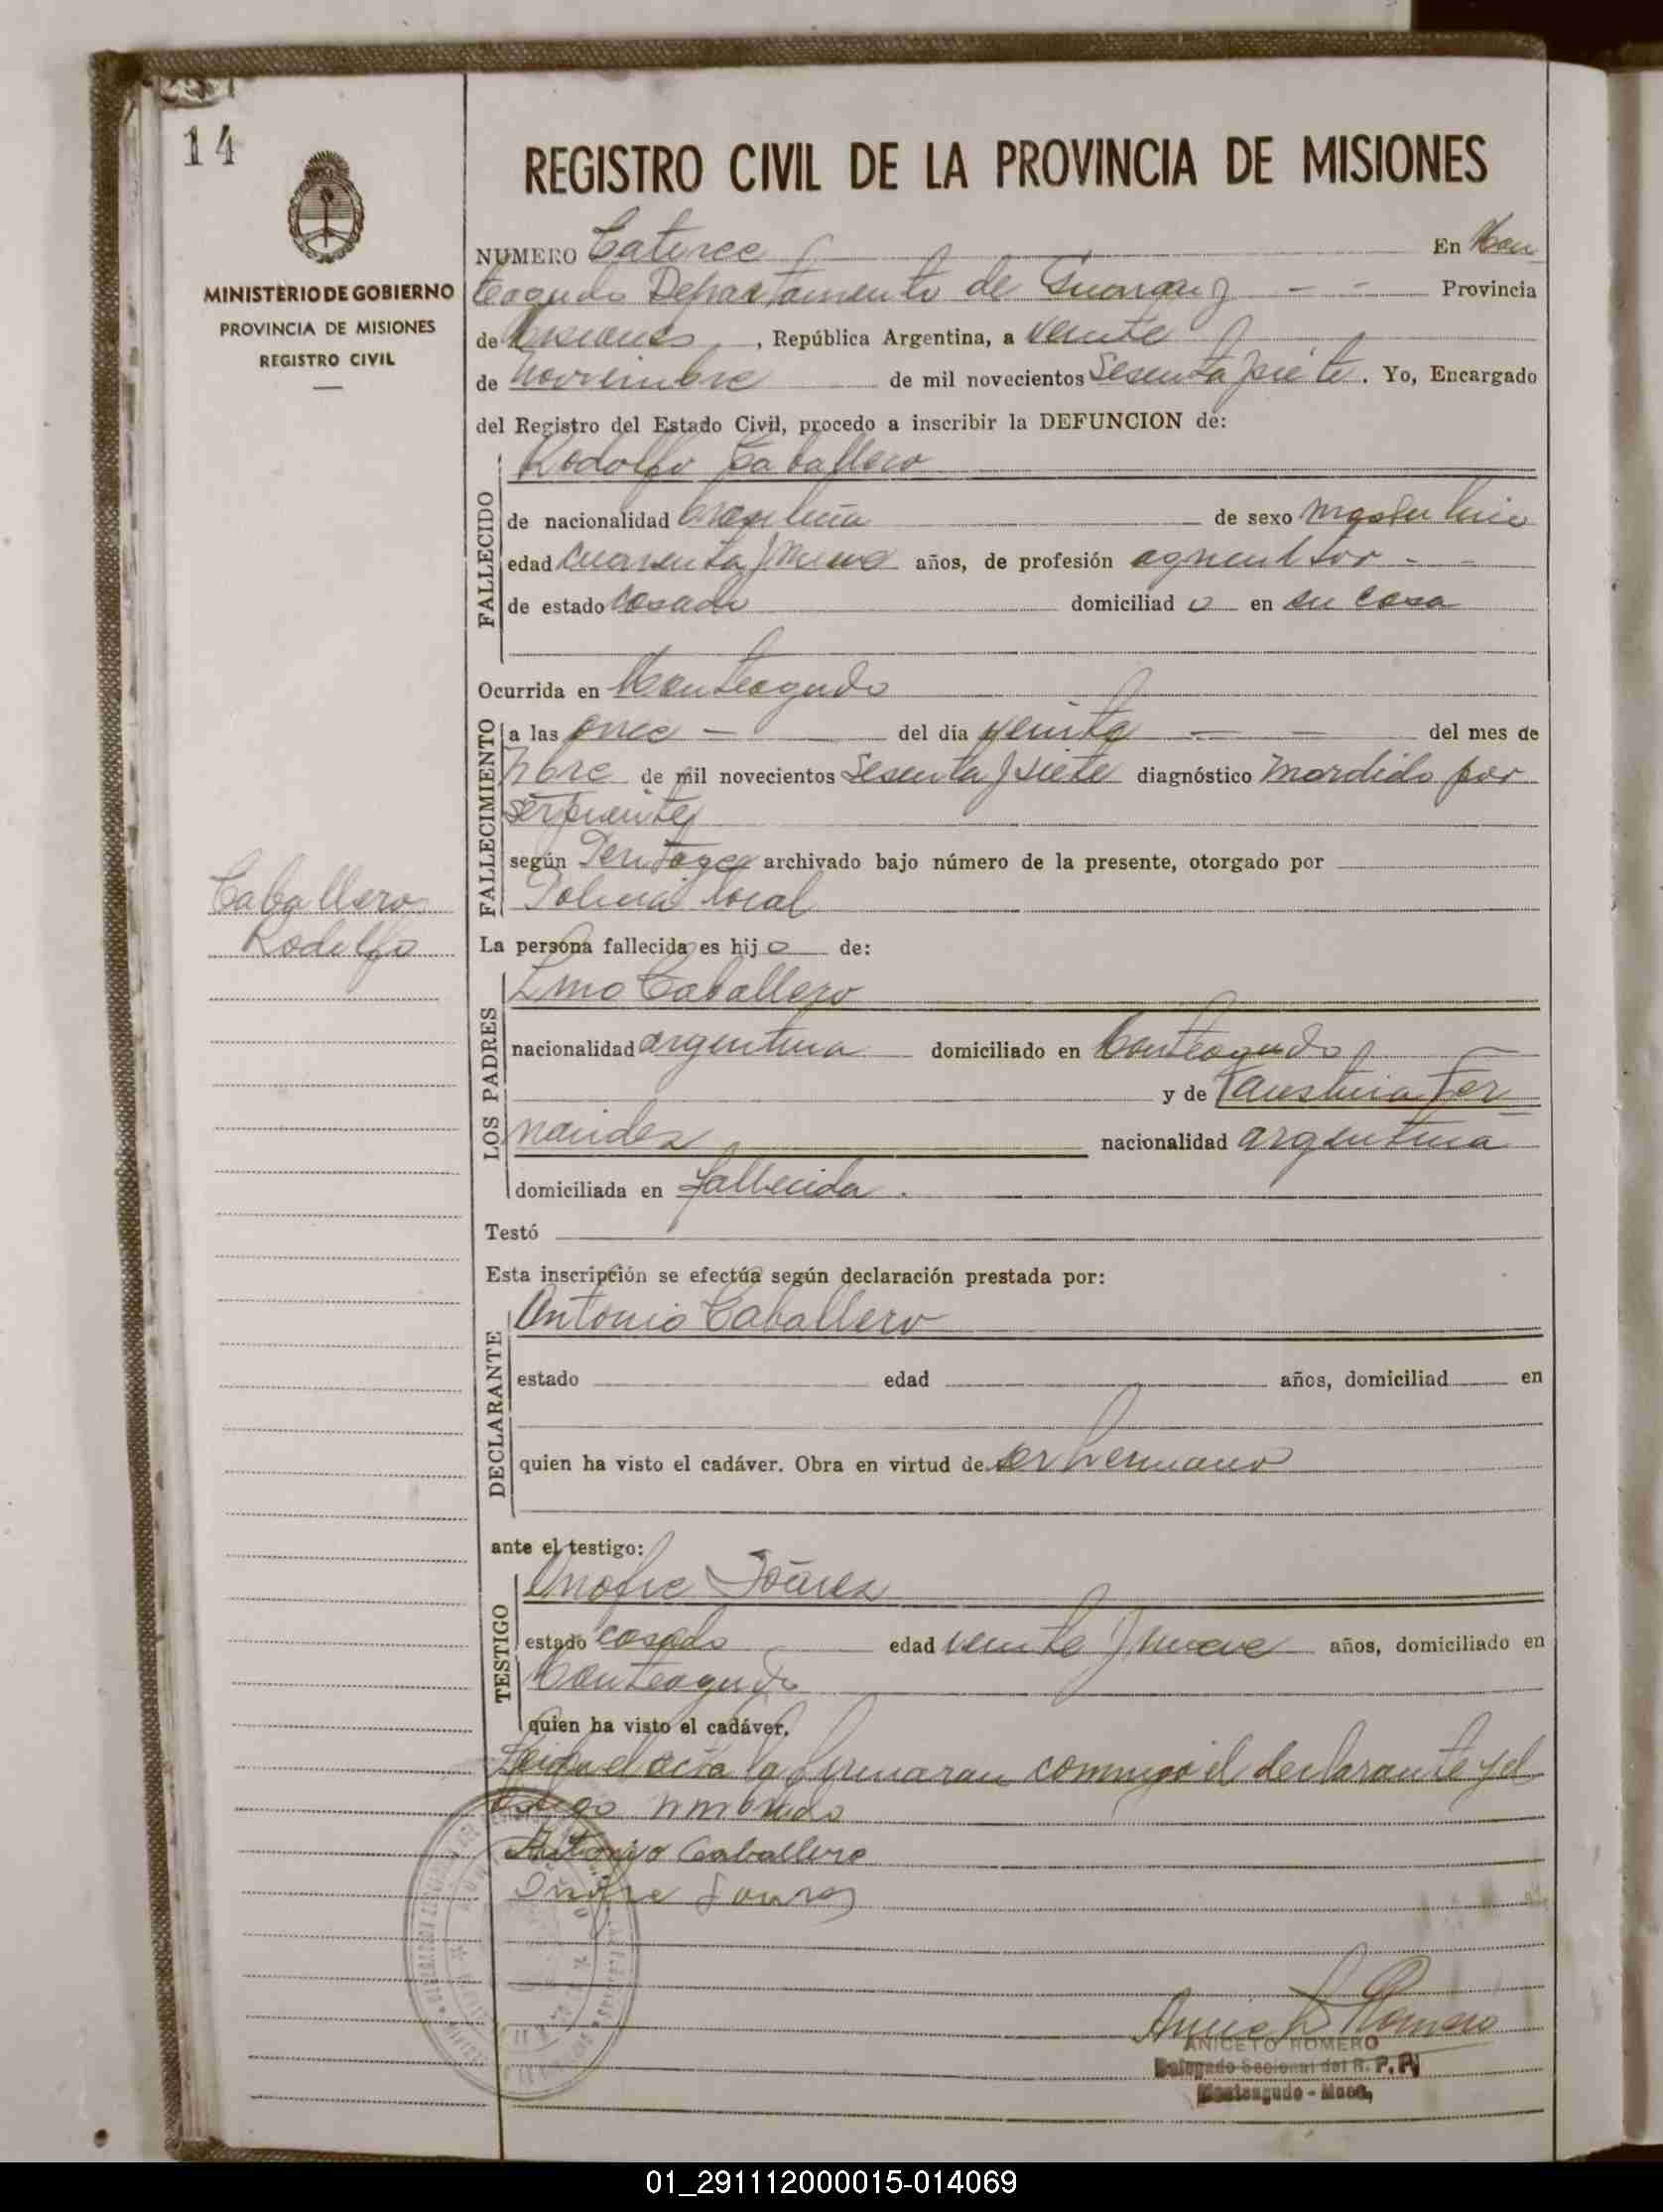 14
MINISTERIO DE GOBIERNO
PROVINCIA DE MISIONES
REGISTRO CIVIL
REGISTRO CIVIL DE LA PROVINCIA DE MISIONES
NUMERO Catorce En Mon
teagudo Departamento de Guarany Provincia
de Misiones, República Argentina, a veinte
de noviembre de mil novecientos Sesenta y siete. Yo, Encargado
del Registro del Estado Civil, procedo a inscribir la DEFUNCION de:
Rodolfo Caballero
FALLECIDO
de nacionalidad brasileña de sexo masculino
edad cuarenta y nueve años, de profesión agricultor
de estado casado domiciliad o en su casa
Ocurrida en Monteagudo
FALLECIMIENTO
a las once del día veinte del mes de
Nbre de mil novecientos Sesenta y siete diagnóstico mordido por
serpiente
según Peritage archivado bajo número de la presente, otorgado por
Policia local
Caballero
Rodolfo
La persona fallecida es hij o de:
LOS PADRES
Lino Caballero
nacionalidad argentina domiciliado en Monteagudo
y de Faustina Fer
nandez nacionalidad argentina
domiciliada en fallecida.
Testó
Esta inscripción se efectúa según declaración prestada por:
DECLARANTE
Antonio Caballero
estado edad años, domiciliad en
quien ha visto el cadáver. Obra en virtud de ser hermano
ante el testigo:
TESTIGO
Onofre Soarez
estado casado edad veinte y nueve años, domiciliado en
Monteagudo
quien ha visto el cadáver.
Leida el acta la firmaran conmigo el declarante y el
Antonio Caballero
Onofre
Aniceto Romero
ANICETO ROMERO
Delegado Seccional del R. P. P.
Monteagudo - Mnes.
01_291112000015-014069